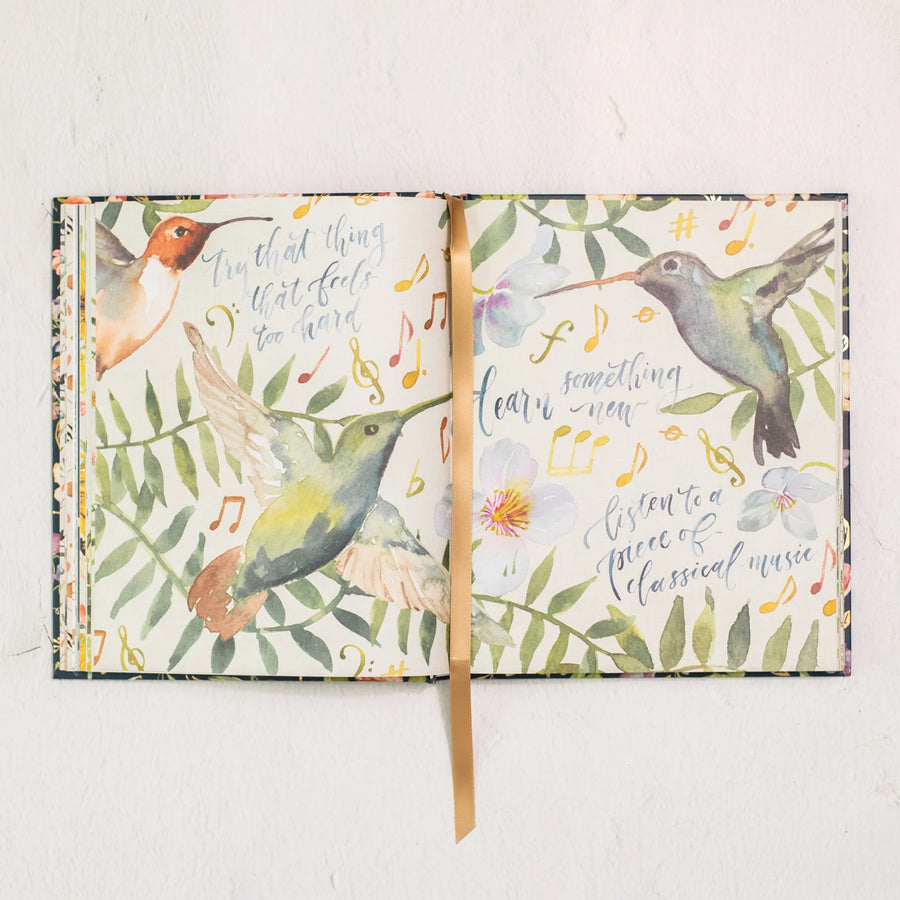 try that thing
that feels
too hard
learn something
new
listen to a
piece of
classical music